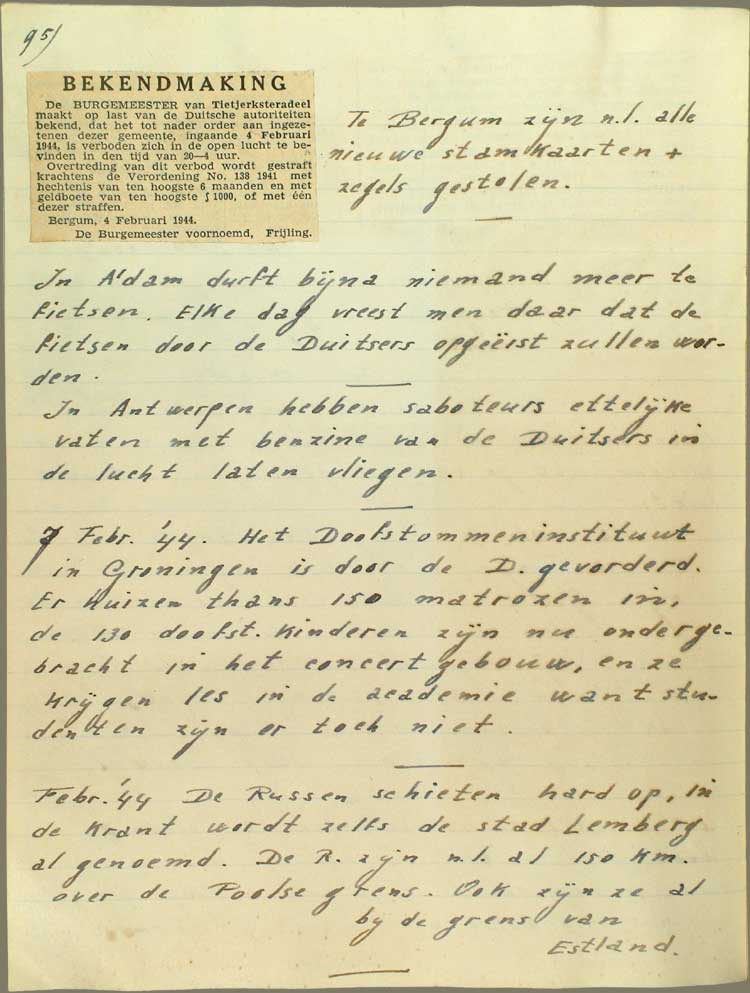 95)
BEKENDMAKING
De BURGEMEESTER van Tietjerksteradeel
maakt op last van de Duitsche autoriteiten
bekend, dat het tot nader order aan ingeze-
tenen dezer gemeente, ingaande 4 Februari
1944, is verboden zich in de open lucht te be-
vinden in den tijd van 20—4 uur.
Overtreding van dit verbod wordt gestraft
krachtens de Verordening No. 138 1941 met
hechtenis van ten hoogste 6 maanden en met
geldboete van ten hoogste ƒ 1000, of met één
dezer straffen.
Bergum, 4 Februari 1944.
De Burgemeester voornoemd, Frijling.
Te Bergum zijn n.l. alle
nieuwe stamkaarten +
zegels gestolen.
In A'dam durft bijna niemand meer te
fietsen. Elke dag vreest men daar dat de
fietsen door de Duitsers opgeëist zullen wor-
den.
In Antwerpen hebben saboteurs ettelijke
vaten met benzine van de Duitsers in
de lucht laten vliegen.
7 Febr. '44. Het Doofstommeninstituut
in Groningen is door de D. gevorderd.
Er huizen thans 150 matrozen in,
de 130 doofst. kinderen zijn nu onderge-
bracht in het concertgebouw, en ze
krijgen les in de academie want stu-
denten zijn er toch niet.
Febr. '44 De Russen schieten hard op, in
de krant wordt zelfs de stad Lemberg
al genoemd. De R. zijn n.l. al 150 km.
over de Poolse grens. Ook zijn ze al
by de grens van
Estland.